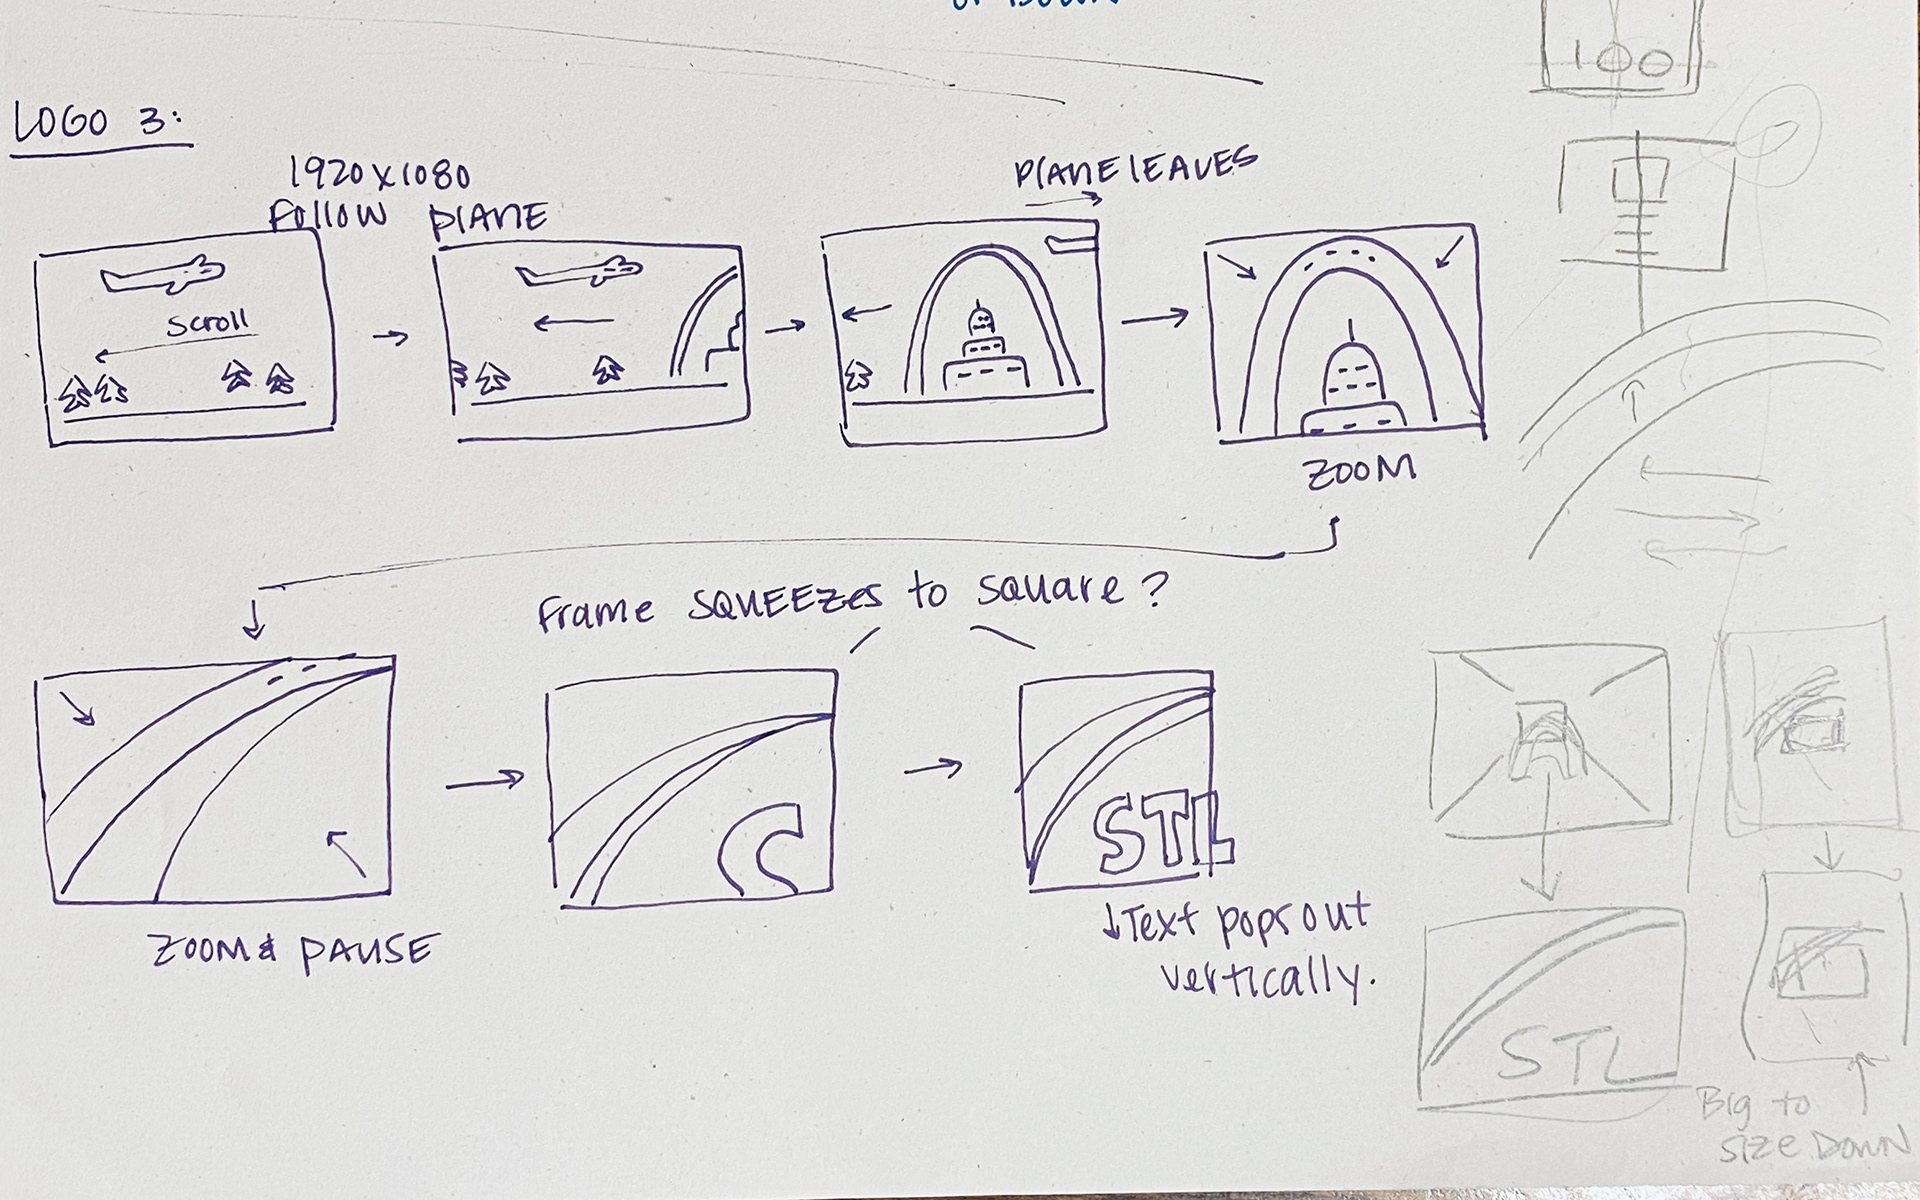 or DOWN
100
LOGO 3:
1920x1080
Follow PLANE
PLANE LEAVES
Scroll
ZOOM
Frame SQUEEZES to square?
C
STL
ZOOM & PAUSE
↓Text pops out
vertically.
STL
Big to
size DOWN